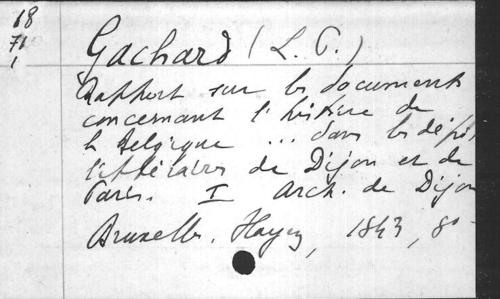 18
71
1
Gachard (L. P.)
Rapport sur les documents
concernant l'histoire de
la Belgique ... dans les dépôts
littéraires de Dijon et de
Paris. I Arch. de Dijon
Bruxelles. Hayez, 1843, 8°